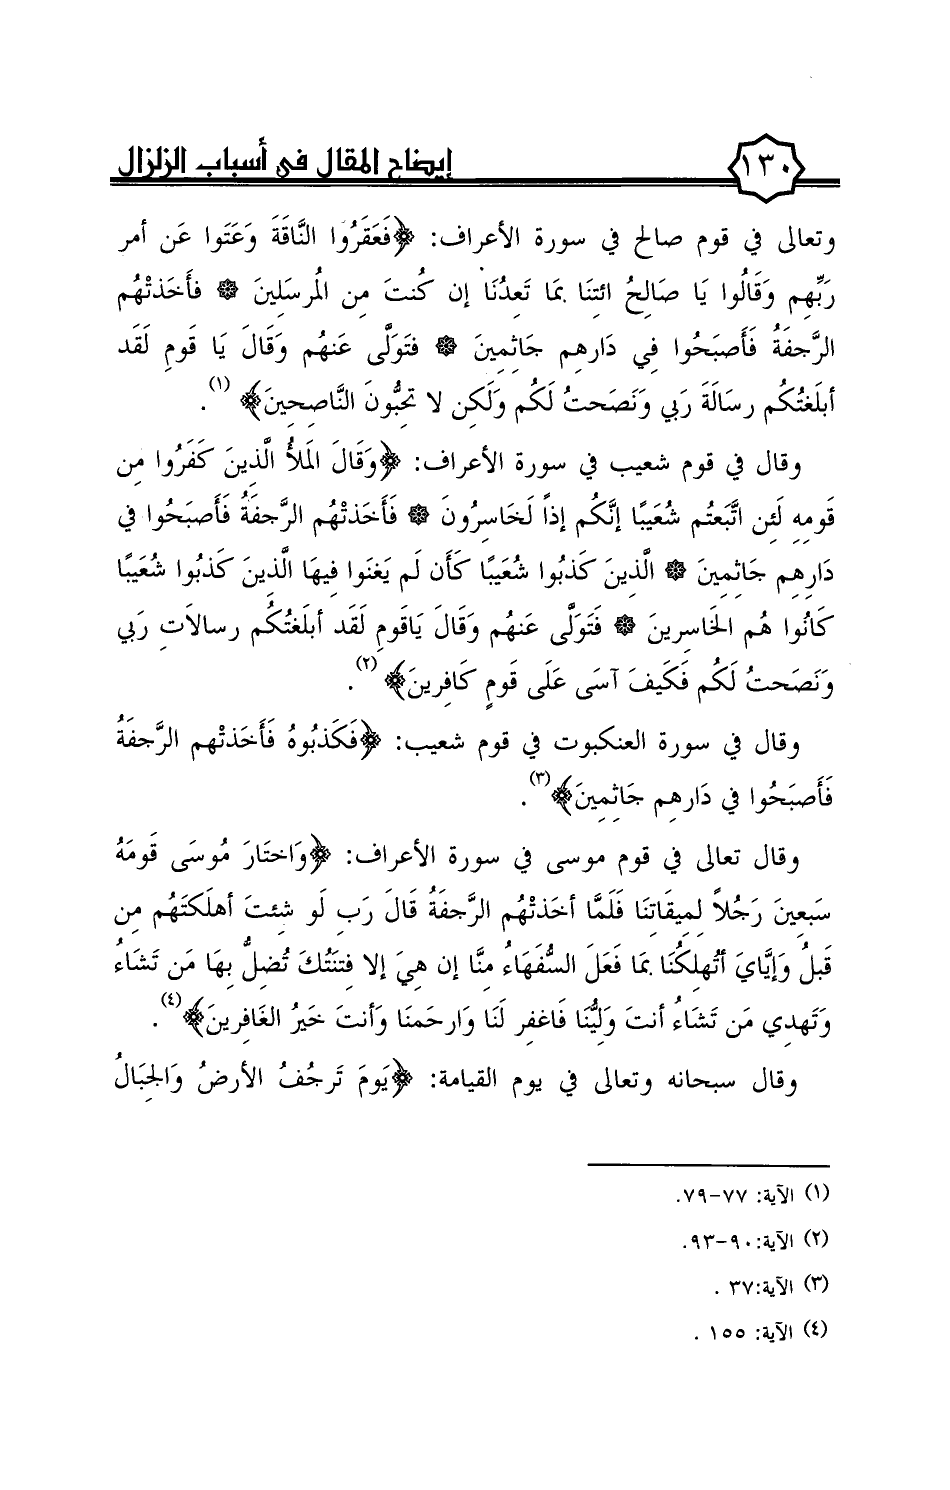 ١٣٠ إيضاح المقال في أسباب الزلزال
وتعالى في قوم صالح في سورة الأعراف: ﴿فَعَقَرُوا النَّاقَةَ وَعَتَوا عَن أمر
رَبِّهِم وَقَالُوا يَا صَالِحُ ائتِنَا بمَا تَعِدُنَا إن كُنتَ مِن المُرسَلِينَ ۞ فأَخَذتْهُم
الرَّجفَةُ فَأَصبَحُوا فِي دَارِهِم جَاثِمِينَ ۞ فتَوَلَّى عَنهُم وَقَالَ يَا قومِ لَقَد
أبلَغتُكُم رِسَالَةَ رَبي وَنَصَحتُ لَكُم وَلَكِن لا تحِبُّونَ النَّاصِحِينَ﴾ (١).
وقال في قوم شعيب في سورة الأعراف: ﴿وَقَالَ المَلأُ الَّذِينَ كَفَرُوا مِن
قَومِهِ لَئِن اتَّبَعتُم شُعَيبًا إنَّكُم إذاً لَخَاسِرُونَ ۞ فَأَخَذتْهُم الرَّجفَةُ فَأَصبَحُوا في
دَارِهِم جَاثِمِينَ ۞ الَّذِينَ كَذبُوا شُعَيبًا كَأَن لَم يَغنَوا فِيهَا الَّذِينَ كَذبُوا شُعَيبًا
كَانُوا هُم الخَاسِرِينَ ۞ فَتَوَلَّى عَنهُم وَقَالَ يَاقَومِ لَقَد أبلَغتُكُم رِسالاَتِ رَبي
وَنَصَحتُ لَكُم فَكَيفَ آسَى عَلَى قَومٍ كَافِرِينَ﴾ (٢).
وقال في سورة العنكبوت في قوم شعيب: ﴿فَكَذبُوهُ فَأَخَذتْهم الرَّجفَةُ
فَأَصبَحُوا في دَارِهِم جَاثِمِينَ﴾(٣).
وقال تعالى في قوم موسى في سورة الأعراف: ﴿وَاختَارَ مُوسَى قَومَهُ
سَبعِينَ رَجُلاً لِمِيقَاتِنَا فَلَمَّا أخَذتْهُم الرَّجفَةُ قَالَ رَب لَو شِئتَ أهلَكتَهُم مِن
قَبلُ وَإيَّايَ أتُهلِكُنَا بمَا فَعَلَ السُّفَهَاءُ مِنَّا إن هِيَ إلا فِتنَتُكَ تُضِلُّ بِهَا مَن تَشَاءُ
وَتَهدِي مَن تَشَاءُ أنتَ وَلِيُّنَا فَاغفِر لَنَا وَارحَمنَا وَأنتَ خَيرُ الغَافِرِينَ﴾(٤).
وقال سبحانه وتعالى في يوم القيامة: ﴿يَومَ تَرجُفُ الأرضُ وَالجِبَالُ
(١) الآية: ٧٧-٧٩.
(٢) الآية:٩٠-٩٣.
(٣) الآية:٣٧ .
(٤) الآية: ١٥٥ .